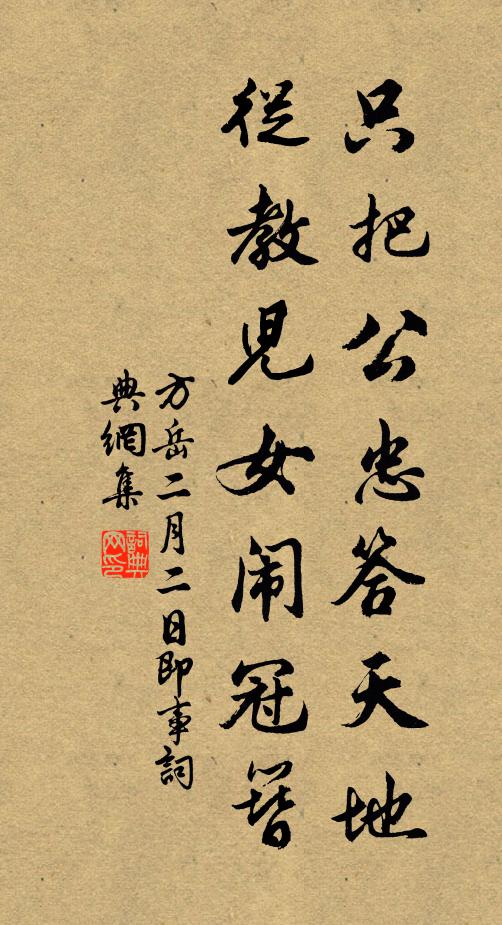 只把公忠答天地
從教兒女闹冠簪
方岳二月二日即事詞
典網集
詞典网印